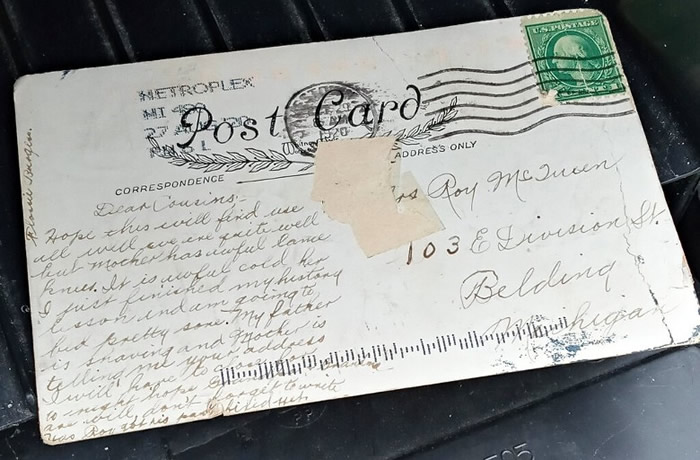 U.S. POSTAGE
METROPLEX
MI 480
Post Card
1920
CORRESPONDENCE
ADDRESS ONLY
Dear Cousins:-
Hope this will find use
all well we are quite well
but Mother has awful lame
knee. It is awful cold here
I just finished my history
lesson and am going to
bed pretty soon. My father
is shaving and Mother is
telling me your address
I will have to close
to night hope
are well don't forget to write
Has Roy got his
Mrs Roy McTwen
103 E Division St.
Belding
Michigan